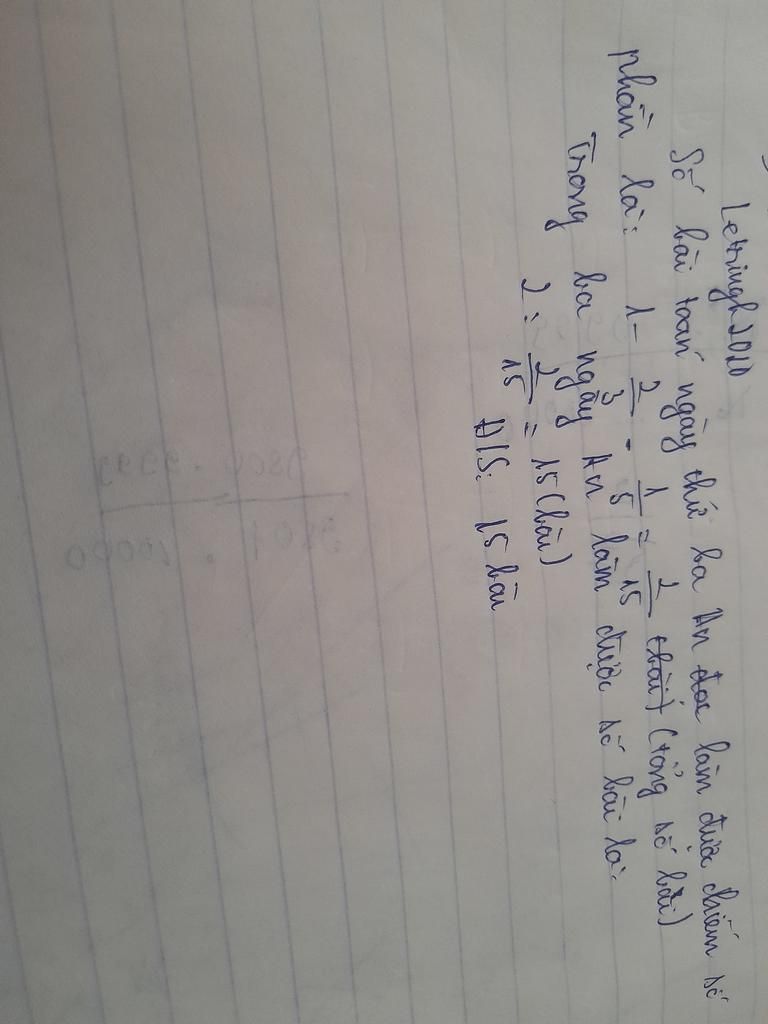 Letringh2010
Số bài toán ngày thứ ba An đọc làm được chiếm số
phần là: 1 - 2/3 - 1/5 = 2/15 (bài) (tổng số bài)
Trong ba ngày An làm được số bài là:
2 : 2/15 = 15 (bài)
Đ/S: 15 bài